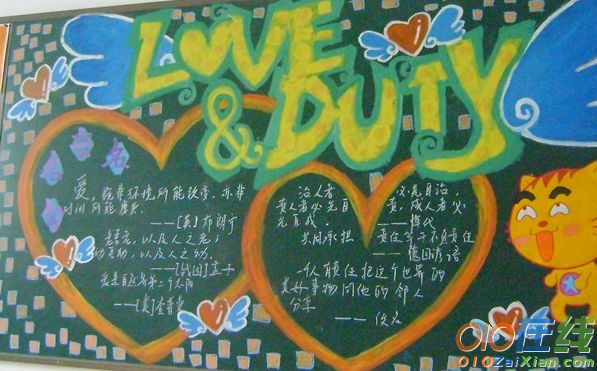 LOVE
& DUTY
爱，既非环境所能改变，亦非
时间所能磨灭。
——[英]布朗宁
老吾老，以及人之老；
幼吾幼，以及人之幼。
——[战国]孟子
治人者必先自治，
责人者必先自责，成人者必
先自成。
共同承担 责任等于不负责任
——德国谚语
一个人能住把这个世界的
美好事物同他的邻人
分享
——佚名
010在线
010ZaiXian.com